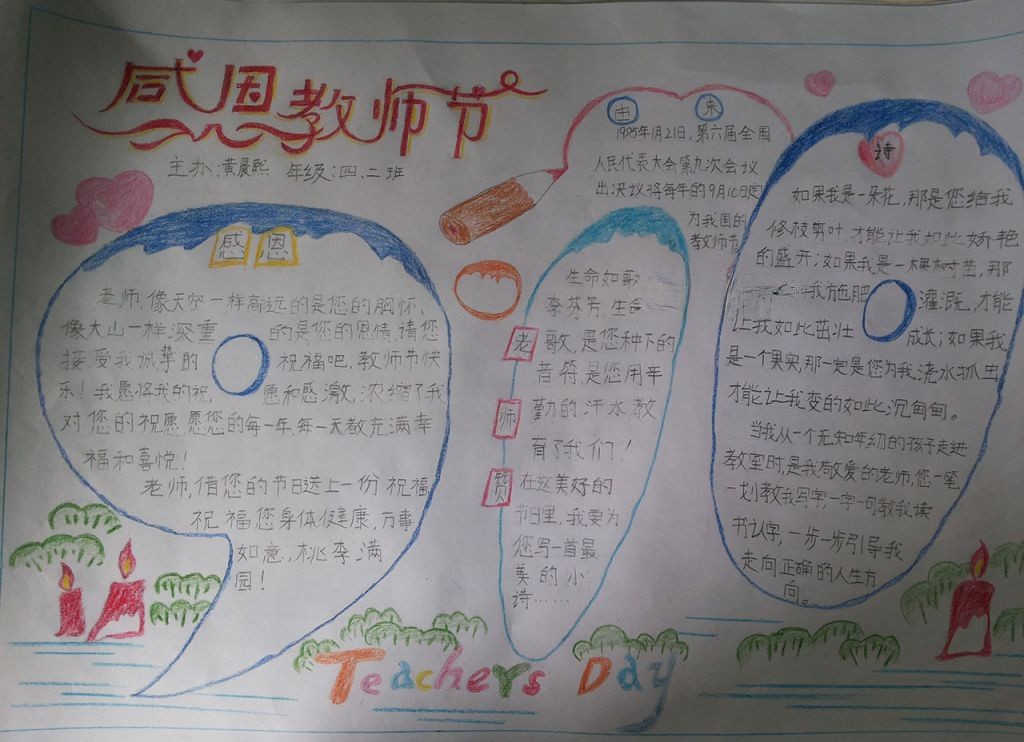 感恩教师节
主办:黄晨熙 年级:四、二班
感恩
老师,像天空一样高远的是您的胸怀,
像大山一样深重的是您的恩情,请您
接受我诚挚的祝福吧,教师节快
乐!我愿将我的祝愿和感激,浓缩了我
对您的祝愿,愿您的每一年,每一天教充满幸
福和喜悦!
老师,借您的节日送上一份祝福,
祝福您身体从健康,万事
如意,桃李满
园!
由来
1985年1月21日,第六届全国
人民代表大会第九次会议
出决议将每年的9月10日定
为我国的
教师节
老师赞
生命如歌
李芬芳,生命
歌,是您种下的
音符,是您用辛
勤的汗水教
育了我们!
在这美好的
节日里,我要为
您写一首最
美的小
诗……
诗
如果我是一朵花,那是您给我
修枝剪叶,才能让我如此娇艳
的盛开;如果我是一棵树苗,那
我施肥灌溉,才能
让我如此茁壮成长;如果我
是一个果实,那一定是您为我浇水抓虫
才能让我变的如此沉甸甸。
当我从一个无知年幼的孩子走进
教室时,是我敬爱的老师,您一笔
一划教我写字,一字一句教我读
书认字,一步一步引导我
走向正确的人生方
向。
Teachers Day